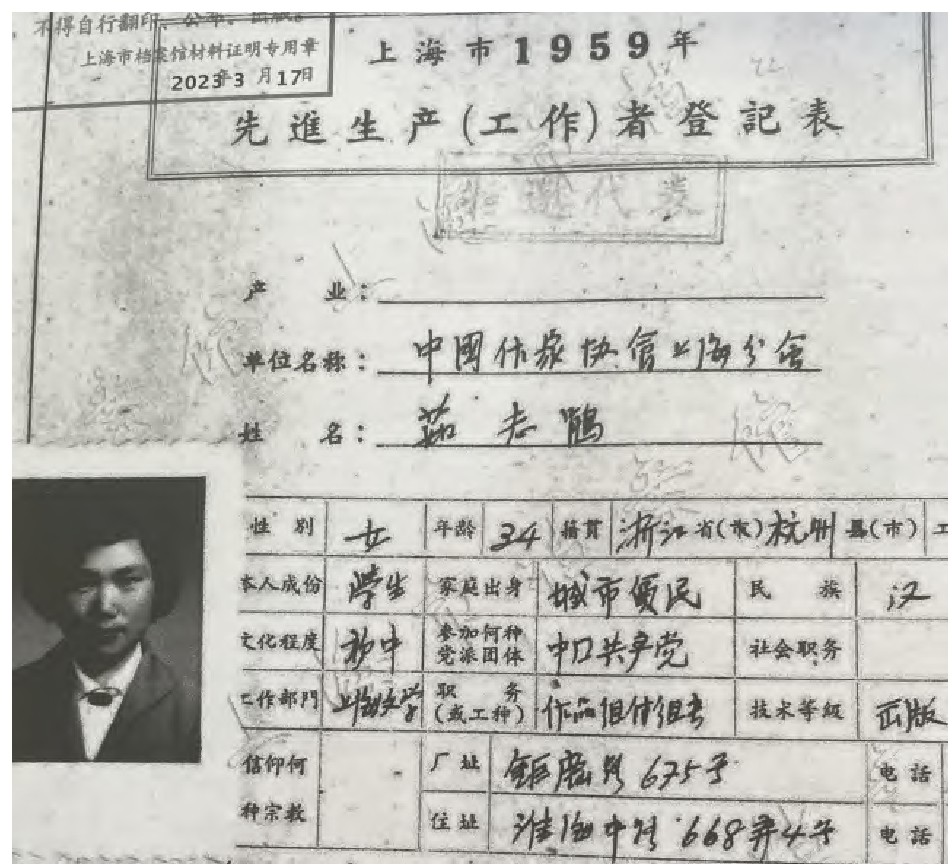 不得自行翻印、公布、出版。
上海市档案馆材料证明专用章
2023年3月17日
上海市1959年
先進生产(工作)者登記表
代表
产 业：
单位名称： 中國作家协会上海分会
姓 名： 茹志鵑
性别 女 年龄 34 籍貫 浙江省(市)杭州县(市) 工
本人成份 学生 家庭出身 城市贫民 民族 汉
文化程度 初中 参加何种党派团体 中口共产党 社会职务
工作部門 上海文学 职务(或工种) 作品组付组长 技术等級
信仰何种宗教 厂址 鉅鹿路675号 电話
住址 淮海中路668弄4号 电話